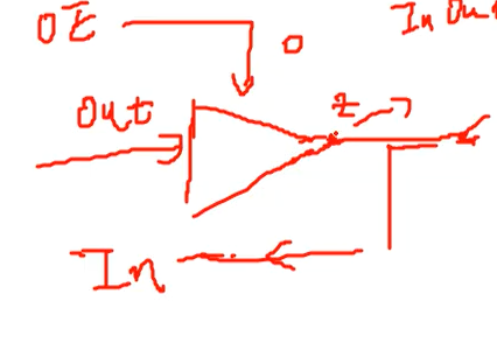 OE
0
In Out
Out
Z
In